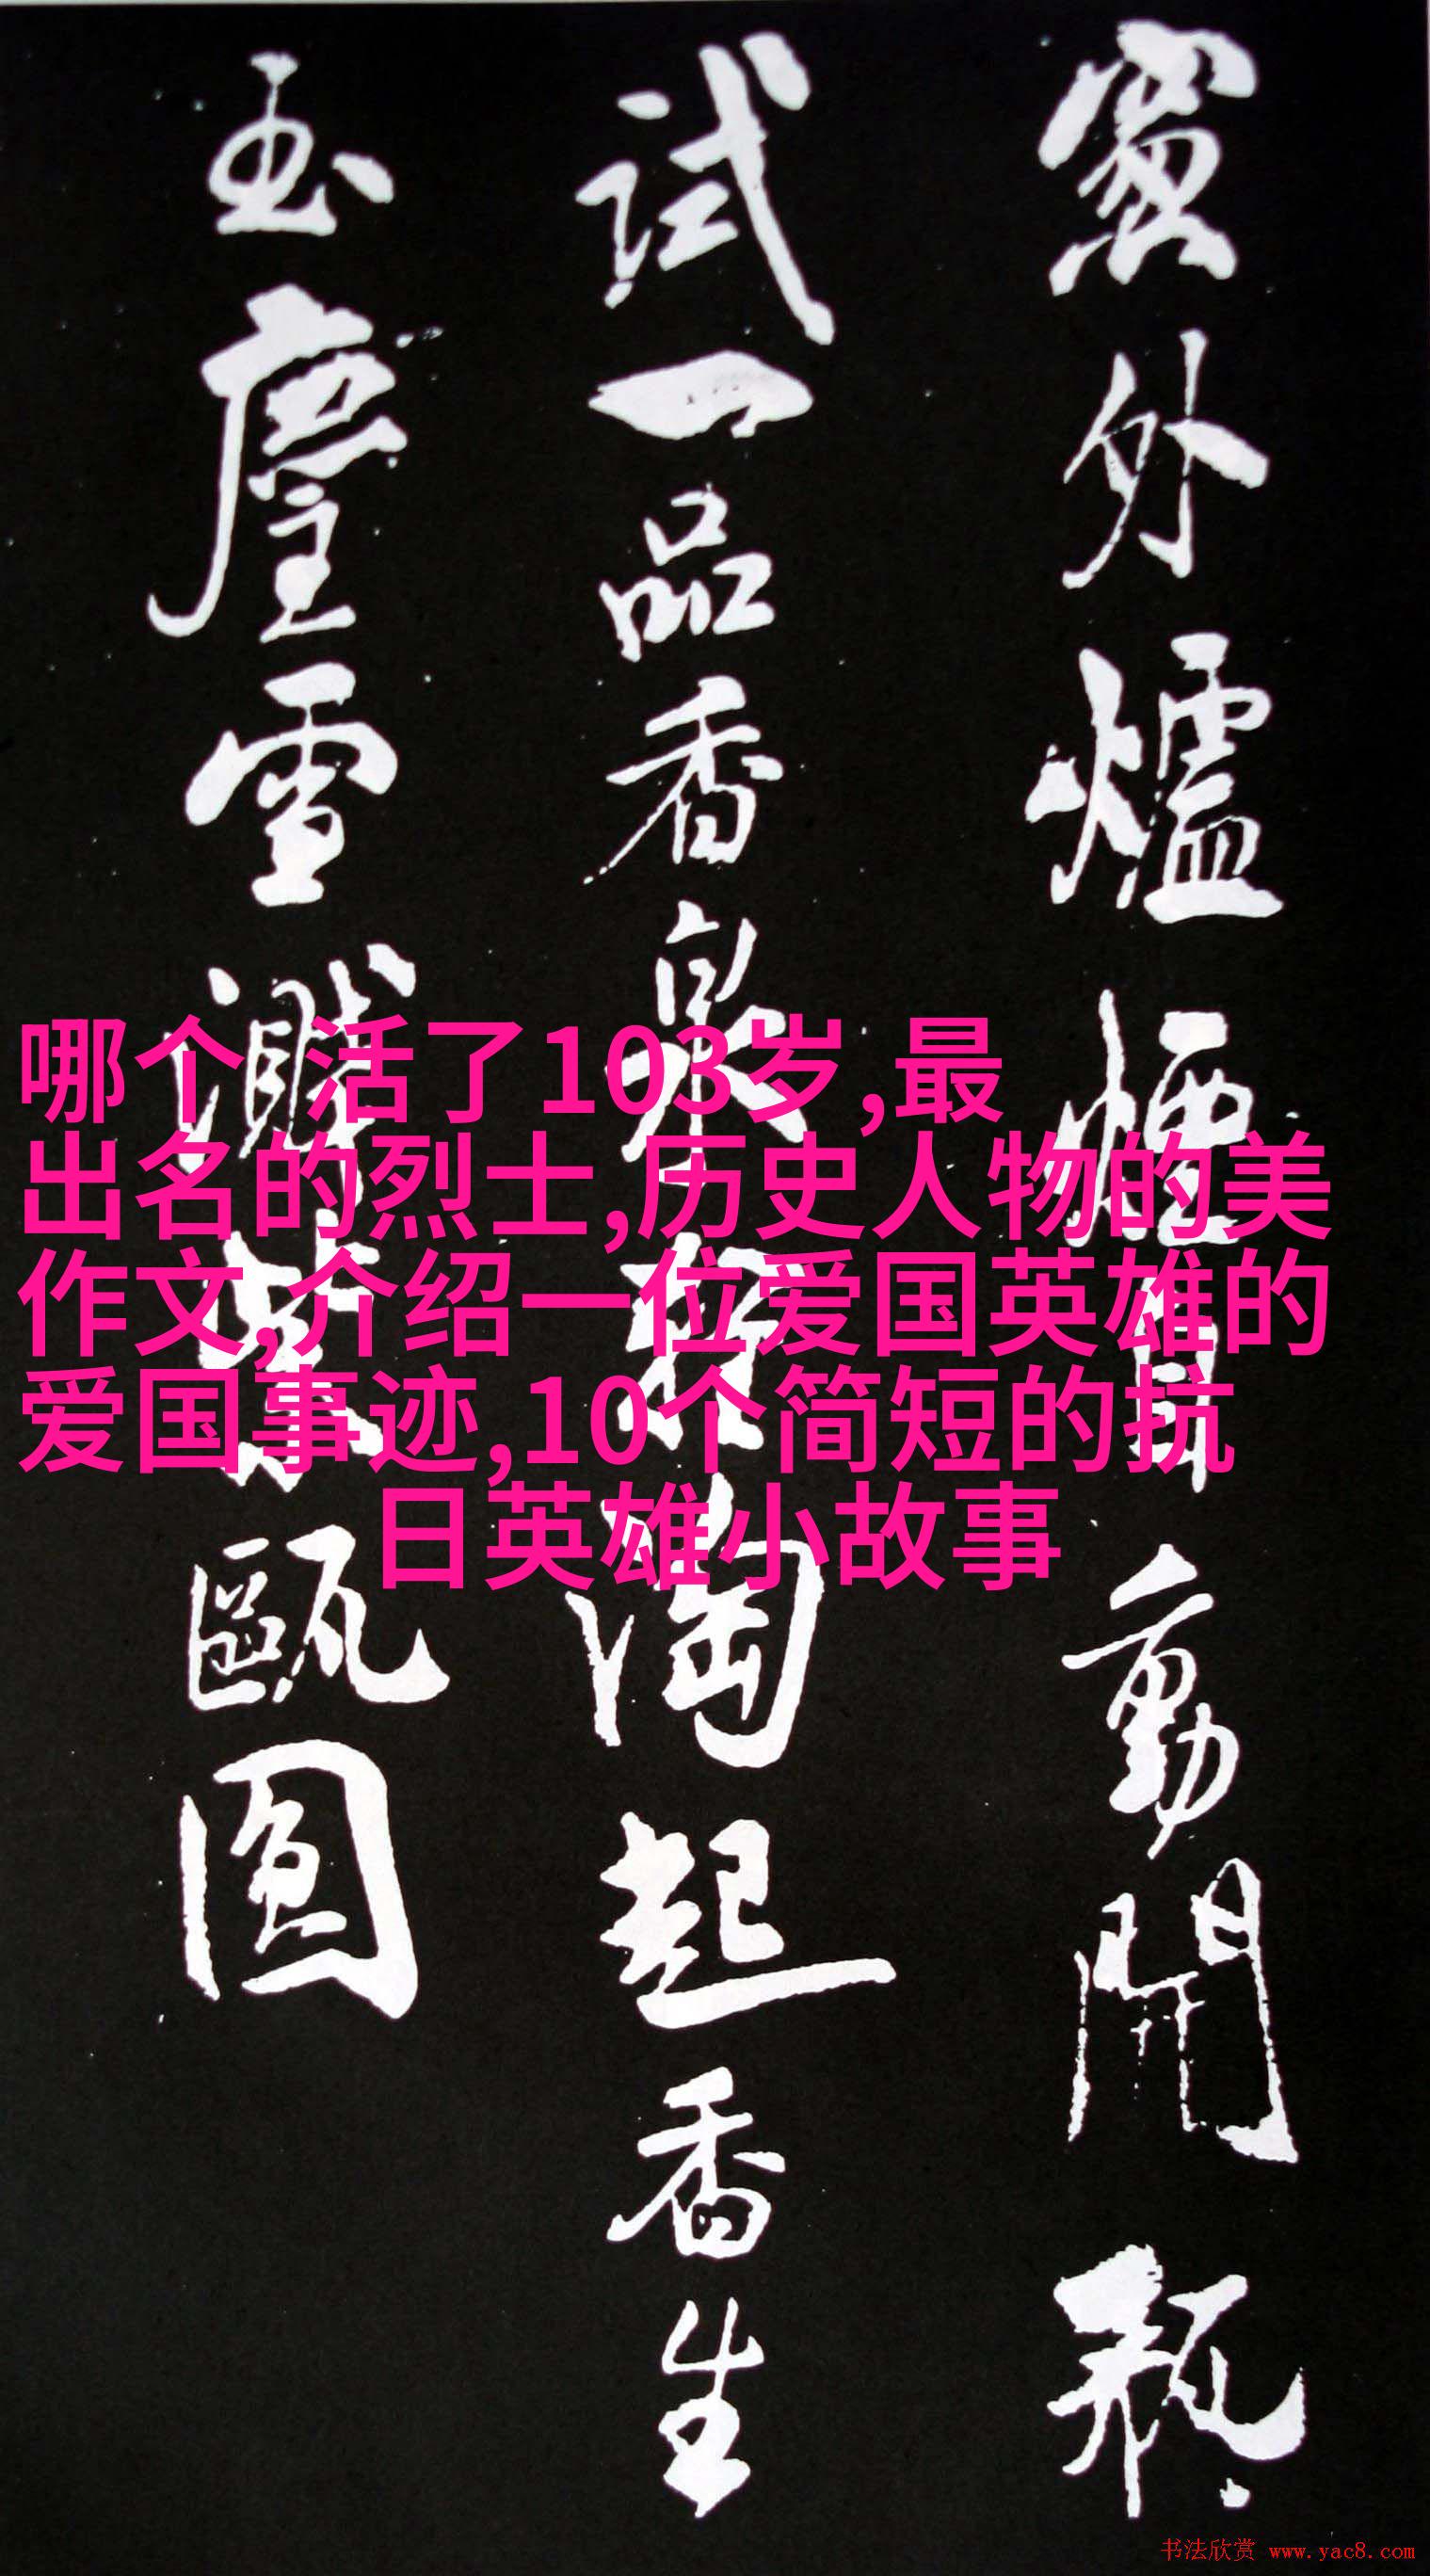 窻外爐煙自動開瓶
試一品香泉輕淘起香生
玉麈雪濺紫甌圓
哪个 活了103岁,最
出名的烈士,历史人物的美
作文,介绍一位爱国英雄的
爱国事迹,10个简短的抗
日英雄小故事
书法欣赏 www.yac8.com